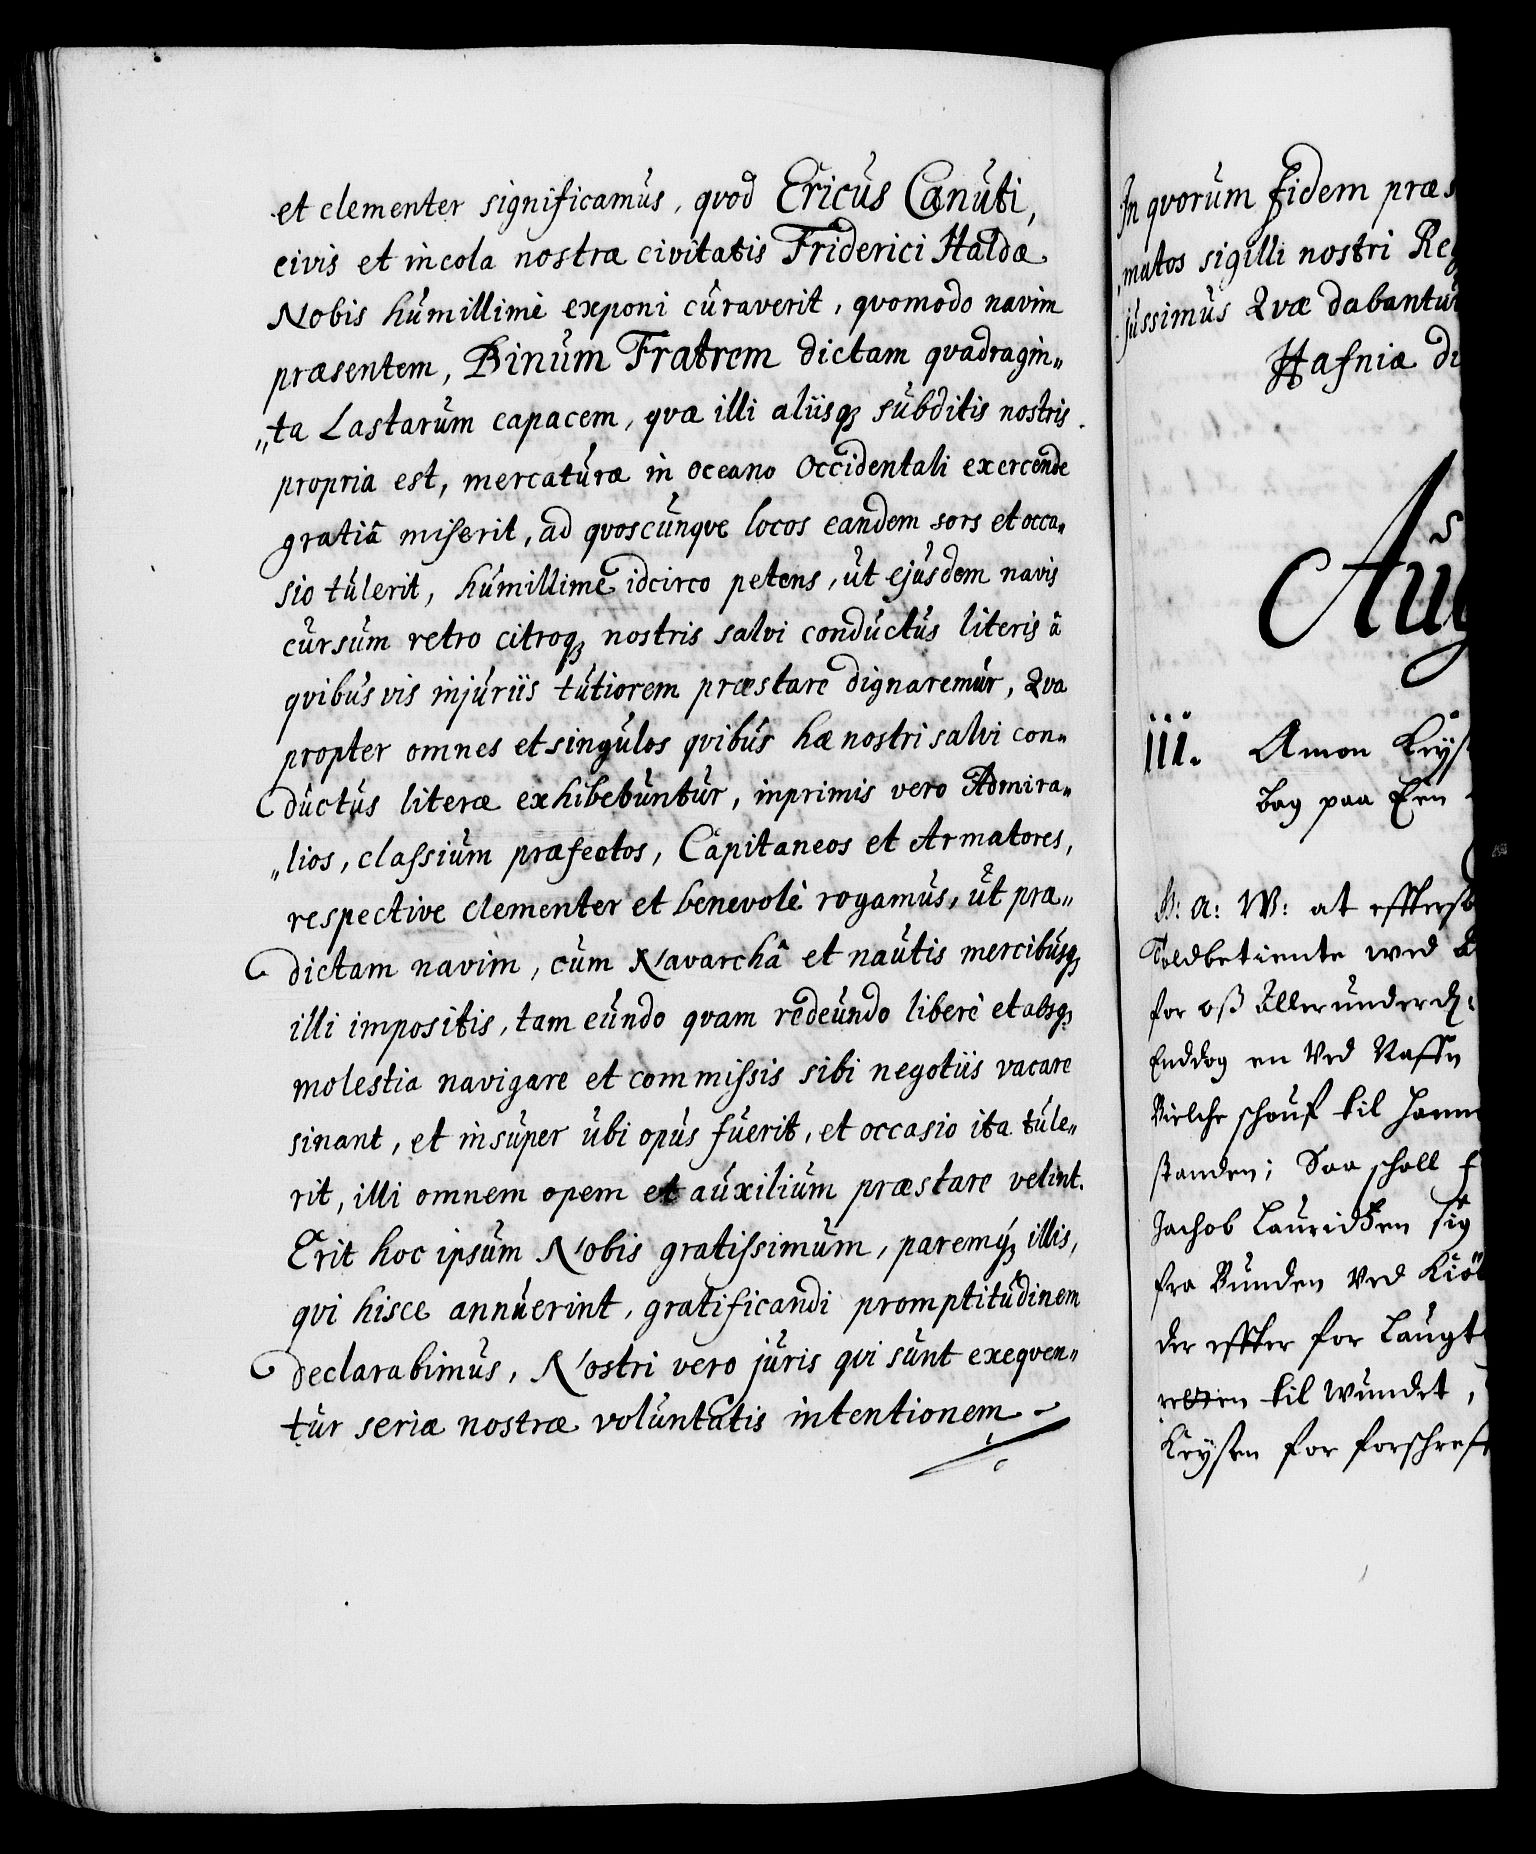 et clementer significamus, qvod Ericus Canuti,
civis et incola nostræ civitatis Friderici Haldæ
Nobis humillimè exponi curaverit, qvomodo navim
præsentem, Binum Fratrem dictam qvadragin„
„ta Lastarum capacem, qvæ illi aliisq3 subditis nostris
propria est, mercaturæ in oceano Occidentali exercendæ
gratiâ miserit, ad qvoscunqve locos eandem sors et occa„
sio tulerit, humillimè idcirco petens, ut ejusdem navis
cursum retro citroq3 nostris salvi conductus literis â
qvibus vis injuriis tutiorem præstare dignaremur, Qva
propter omnes et singulos qvibus hæ nostri salvi con„
ductus literæ exhibebuntur, inprimis vero Admira„
„lios, classium præfectos, Capitaneos et Armatores,
respective clementer et benevolè rogamus, ut præ„
dictam navim, cum Navarchâ et nautis mercibusq3
illi impositis, tam eundo qvam redeundo liberè et absq3
molestia navigare et commissis sibi negotiis vacare
sinant, et insuper ubi opus fuerit, et occasio ita tule„
rit, illi omnem opem et auxilium præstare velint.
Erit hoc ipsum Nobis gratissimum, paremq3 illis,
qvi hisce annuerint, gratificandi promptitudinem
declarabimus, Nostri vero juris qvi sunt exeqven„
tur seriæ nostræ voluntatis intentionem
In qvorum fidem præs
matos sigilli nostri Reg
jussimus Qvæ dabantur
Hafniæ di
Aug
III. Amon Krys
bag paa Een
B: A: W: at effterst
Toldbetiente wed
for oss Allerunderd:
Enddog en Wed Naffn
Vielche schouf til hann
standen; Saa schall
Jachob Lauridtzen sig
fra Bunden Wed Kiö
der effter for Laugt
retten til wundet,
Krysen for forschreff